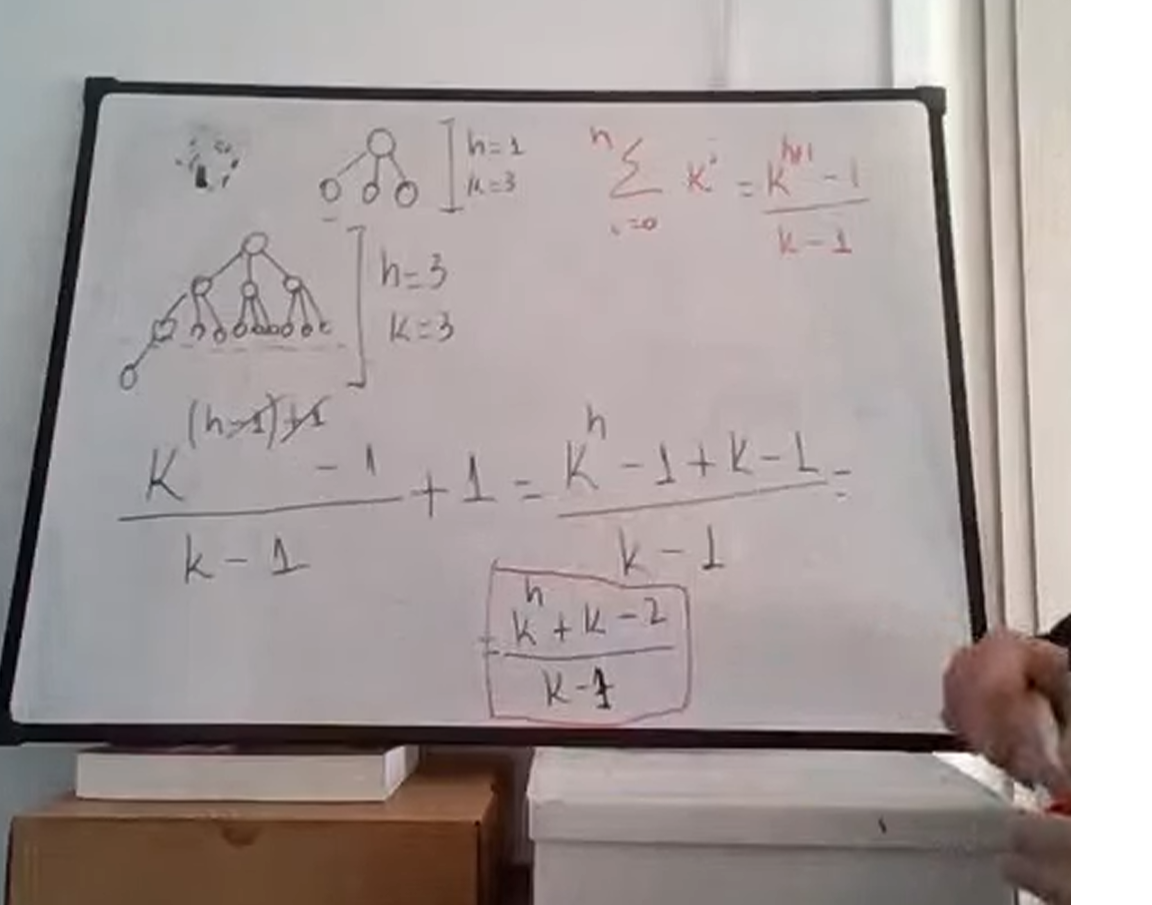 h=1
k=3
n
∑ k^i = (k^(h+1) - 1) / (k - 1)
i=0
h=3
k=3
(k^((h-1)+1) - 1) / (k - 1) + 1 = (k^h - 1 + k - 1) / (k - 1) =
= (k^h + k - 2) / (k - 1)